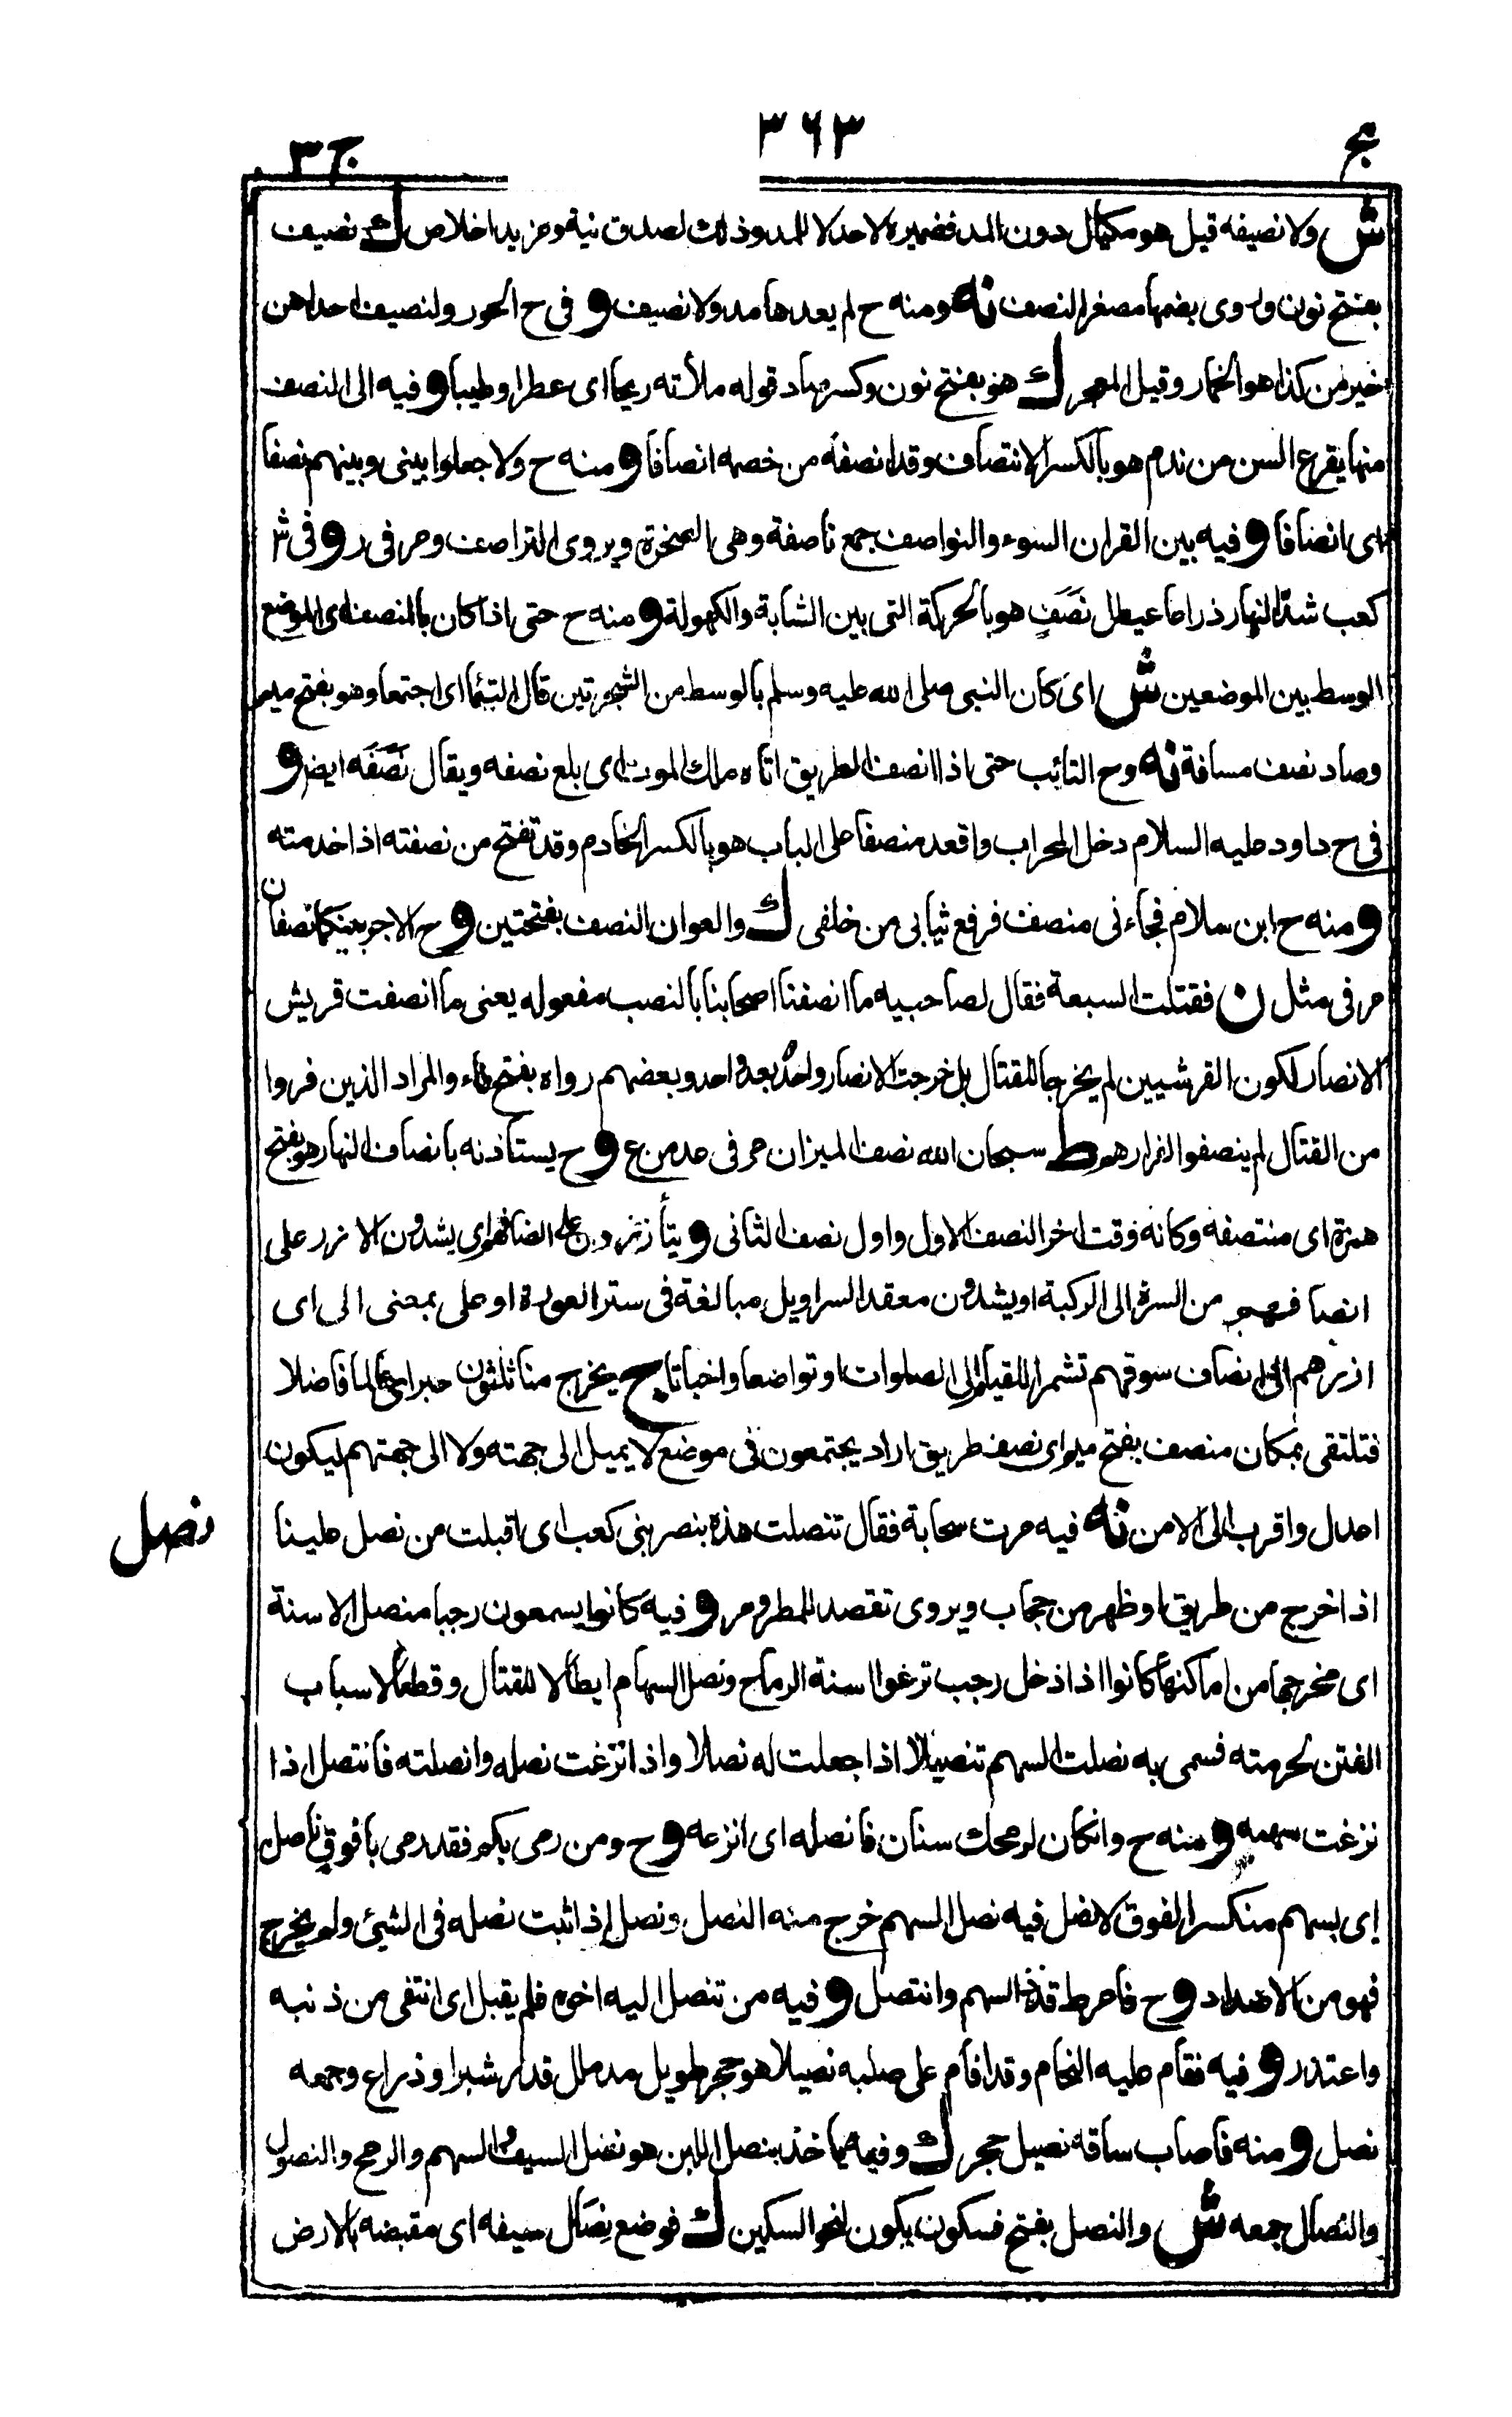 مج
٣٦٣
ج ٣
ش ولا نصيفه قيل هو مكيال دون المد فضميره لاحد لا للمد وذلك لصدق نية ومزيد اخلاص ك نصيف
بفتح نون وروى بضمها مصغر النصف نه ومنه ح لم يعدها مد ولا نصيف و فى ح الحور ولنصيف احداهن
خير من كذا هو الخمار وقيل المعجر ك هو بفتح نون وكسر صاد قوله ملأته ريحا اى عطرا وطيبا و فيه الى النصف
منها يقرع السن من ندم هو بالكسر الانتصاف وقد انصفه من خصمه انصافا و منه ح ولا جعلوا بينى وبينهم نصفا
اى انصافا و فيه بين القران السوء والنواصف جمع ناصفة وهى الصخرة ويروى التراصف ومر فى ر و فى ش
كعب شد النهار ذراعا عيطل نَصَفٍ هو بالحركة التى بين الشابة والكهولة و منه ح حتى اذا كان بالمنصف اى الموضع
الوسط بين الموضعين ش اى كان النبى صلى الله عليه وسلم بالوسط من الشجرتين قال التئما اى اجتمعا وهو بفتح ميم
وصاد نصف مسافة نه وح التائب حتى اذا انصف الطريق اتاه ملك الموت اى بلغ نصفه ويقال نَصَّفَه ايضا و
فى ح داود عليه السلام دخل المحراب واقعد منصفا على الباب هو بالكسر الخادم وقد تفتح من نصفته اذا خدمته
و منه ح ابن سلام فجاءنى منصف فرفع ثيابى من خلفى ك والعوان النصف بفتحتين و ح الاجر بينكما نصفان
مر فى مثل ن فقتلت السبعة فقال لصاحبيه ما انصفنا اصحابنا بالنصب مفعوله يعنى ما انصفت قريش
الانصار لكون القرشيين لم يخرجا للقتال بل خرجت الانصار واحد بعد واحد وبعضهم رواه بفتح فاء والمراد الذين فروا
من القتال لم ينصفوا الفرارهم ط سبحان الله نصف الميزان مر فى عد من ع و ح يستأذنه بانصاف النهار هو بفتح
همزة اى منتصفه وكانه وقت اخر النصف الاول واول نصف الثانى و يتأزرون على انصافهم اى يشدون الازر على
انصافهم من السرة الى الركبة او يشدون معقد السراويل مبالغة فى ستر العورة او على بمعنى الى اى
ازرهم الى انصاف سوقهم تشمرا للقيام الى الصلوات او تواضعا واخباتا ج يخرج منا ثلثون حبرا اى عالما فاضلا
فتلتقى بمكان منصف بفتح ميم اى نصف طريق اراد يجتمعون فى موضع لا يميل الى جهته ولا الى جهتهم ليكون
اعدل واقرب الى الامن نه فيه مرت سحابة فقال تنصلت هذه بنصر بنى كعب اى اقبلت من نصل علينا
نصل
اذا خرج من طريق او ظهر من حجاب ويروى تقصد للمطر ومر و فيه كانوا يسمعون رجبا منصل الاسنة
اى مخرجها من اماكنها كانوا اذا دخل رجب نزعوا اسنة الرماح ونصل السهام ابطالا للقتال وقطعا لاسباب
الفتن لحرمته فسمى به نصلت السهم تنصيلا اذا جعلت له نصلا واذا نزعت نصله وانصلته فانتصل اذا
نزعت سهمه و منه ح وان كان لرمحك سنان فانصله اى انزعه و ح ومن رمى بكم فقد رمى بافوق ناصل
اى بسهم منكسر الفوق لا نصل فيه نصل السهم خرج منه النصل ونصل اذا ثبت نصله فى الشيئ ولم يخرج
فهو من الاضداد و ح فامرط قذذ السهم وانتصل و فيه من تنصل اليه اخوه فلم يقبل اى انتفى من ذنبه
واعتذر و فيه فقام عليه النحام وقد اقام على صلبه نصيلا هو حجر طويل مدملك قدر شبر او ذراع وجمعه
نصل و منه فاصاب ساقه نصيل حجر ك وفيه يأخذ بنصل اللبن هو نصل السيف والسهم والرمح والنصول
والنصال جمعه ش والنصل بفتح فسكون يكون لنحو السكين ك فوضع نصل سيفه اى مقبضه بالارض